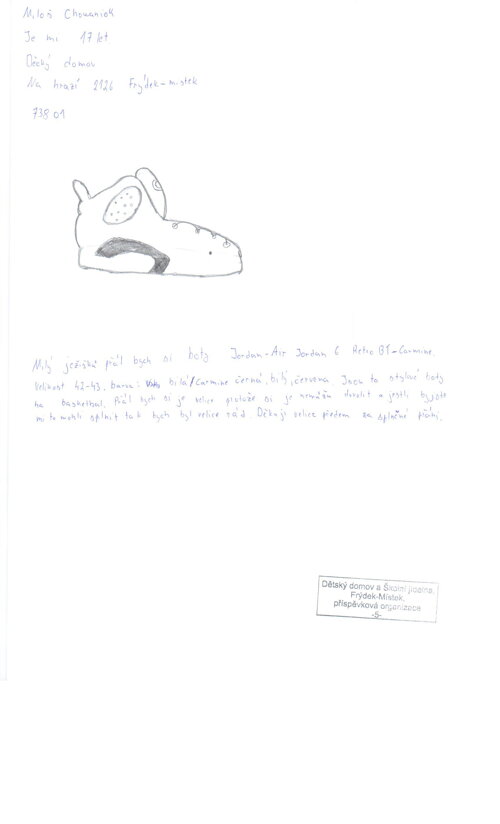 Miloš Chowaniok
Je mi 17 let
Děcký domov
Na hrazi 2126 Frýdek-místek
738 01
Milý ježíšku přál bych si boty Jordan-Air Jordan 6 Retro GT-Carmine.
Velikost 42-43. barva: bílá/Carmine černá, bílý, červena. Jsou to stylové boty
na basketbal. Přál bych si je velice protože si je nemůžu dovolit a jestli byjste
mi to mohli splnit tak bych byl velice rád. Děkuji velice předem za splněné přání.
Dětský domov a Školní jídelna,
Frýdek-Místek,
příspěvková organizace
-5-